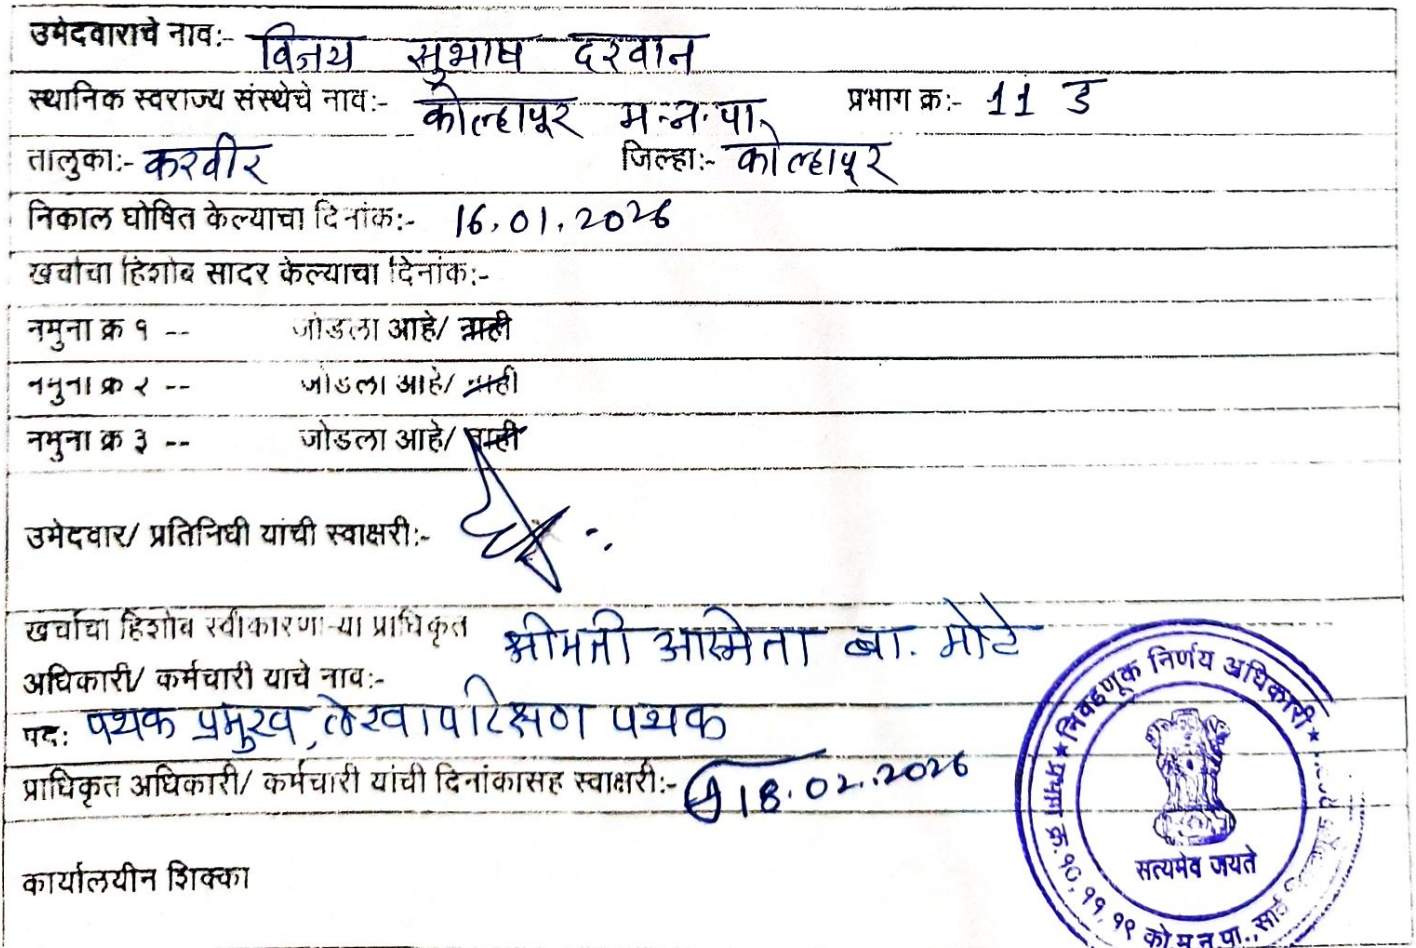 उमेदवाराचे नाव:- विजय सुभाष दरवान
स्थानिक स्वराज्य संस्थेचे नाव:- कोल्हापूर म.न.पा. प्रभाग क्र:- 11 ड
तालुका:- करवीर जिल्हा:- कोल्हापूर
निकाल घोषित केल्याचा दिनांक:- 16.01.2026
खर्चाचा हिशोब सादर केल्याचा दिनांक:-
नमुना क्र १ -- जोडला आहे/ नाही
नमुना क्र २ -- जोडला आहे/ नाही
नमुना क्र ३ -- जोडला आहे/ नाही
उमेदवार/ प्रतिनिधी यांची स्वाक्षरी:-
खर्चाचा हिशोब स्वीकारणा-या प्राधिकृत श्रीमती अस्मिता बा. मोटे
अधिकारी/ कर्मचारी याचे नाव:-
पद: पथक प्रमुख, लेखापरिक्षण पथक
प्राधिकृत अधिकारी/ कर्मचारी यांची दिनांकासह स्वाक्षरी:- 18.02.2026
कार्यालयीन शिक्का
निवडणूक निर्णय अधिकारी
सत्यमेव जयते
प्रभाग क्र. १०, ११, १९ को.म.न.पा., सार्व